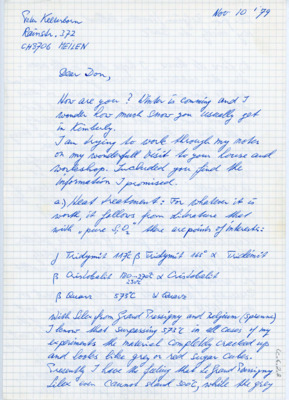 Nov 10 '79
Rainstr. 372
CH8706 MEILEN
Dear Don,
How are you? Winter is comming and I
wonder how much snow you usually get
in Kimberly.
I am trying to work through my notes
on my wonderfull visit to your house and
workshop. Included you find the
information I promised.
a) Heat treatment: For whatever it is
worth, it follows from literature that
with "pure SiO2" there are points of interests:
γ Tridymit 117° β Tridymit 163° α Tridimit
β Cristobalit α Cristobalit
β Quarz 575°C α Quarz
With Silex from Grand Pressigny and Belgium (Spiennes)
I know that surpassing 573°C in all cases of my
experiments the material completely cracked up
and looks like grey or red sugar cubes.
Presently I have the feeling that Le Grand Pressigny
Silex even cannot stand 300°C, while the grey